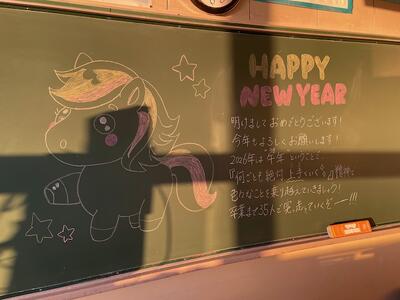 HAPPY
NEW YEAR
明けましておめでとうございます!
今年もよろしくお願いします!
2026年は午年ということで
『何ごとも絶対上手くいく』精神で
色々なことを乗り越えていきましょう!
卒業まで35人で突っ走っていくぞーーー!!!